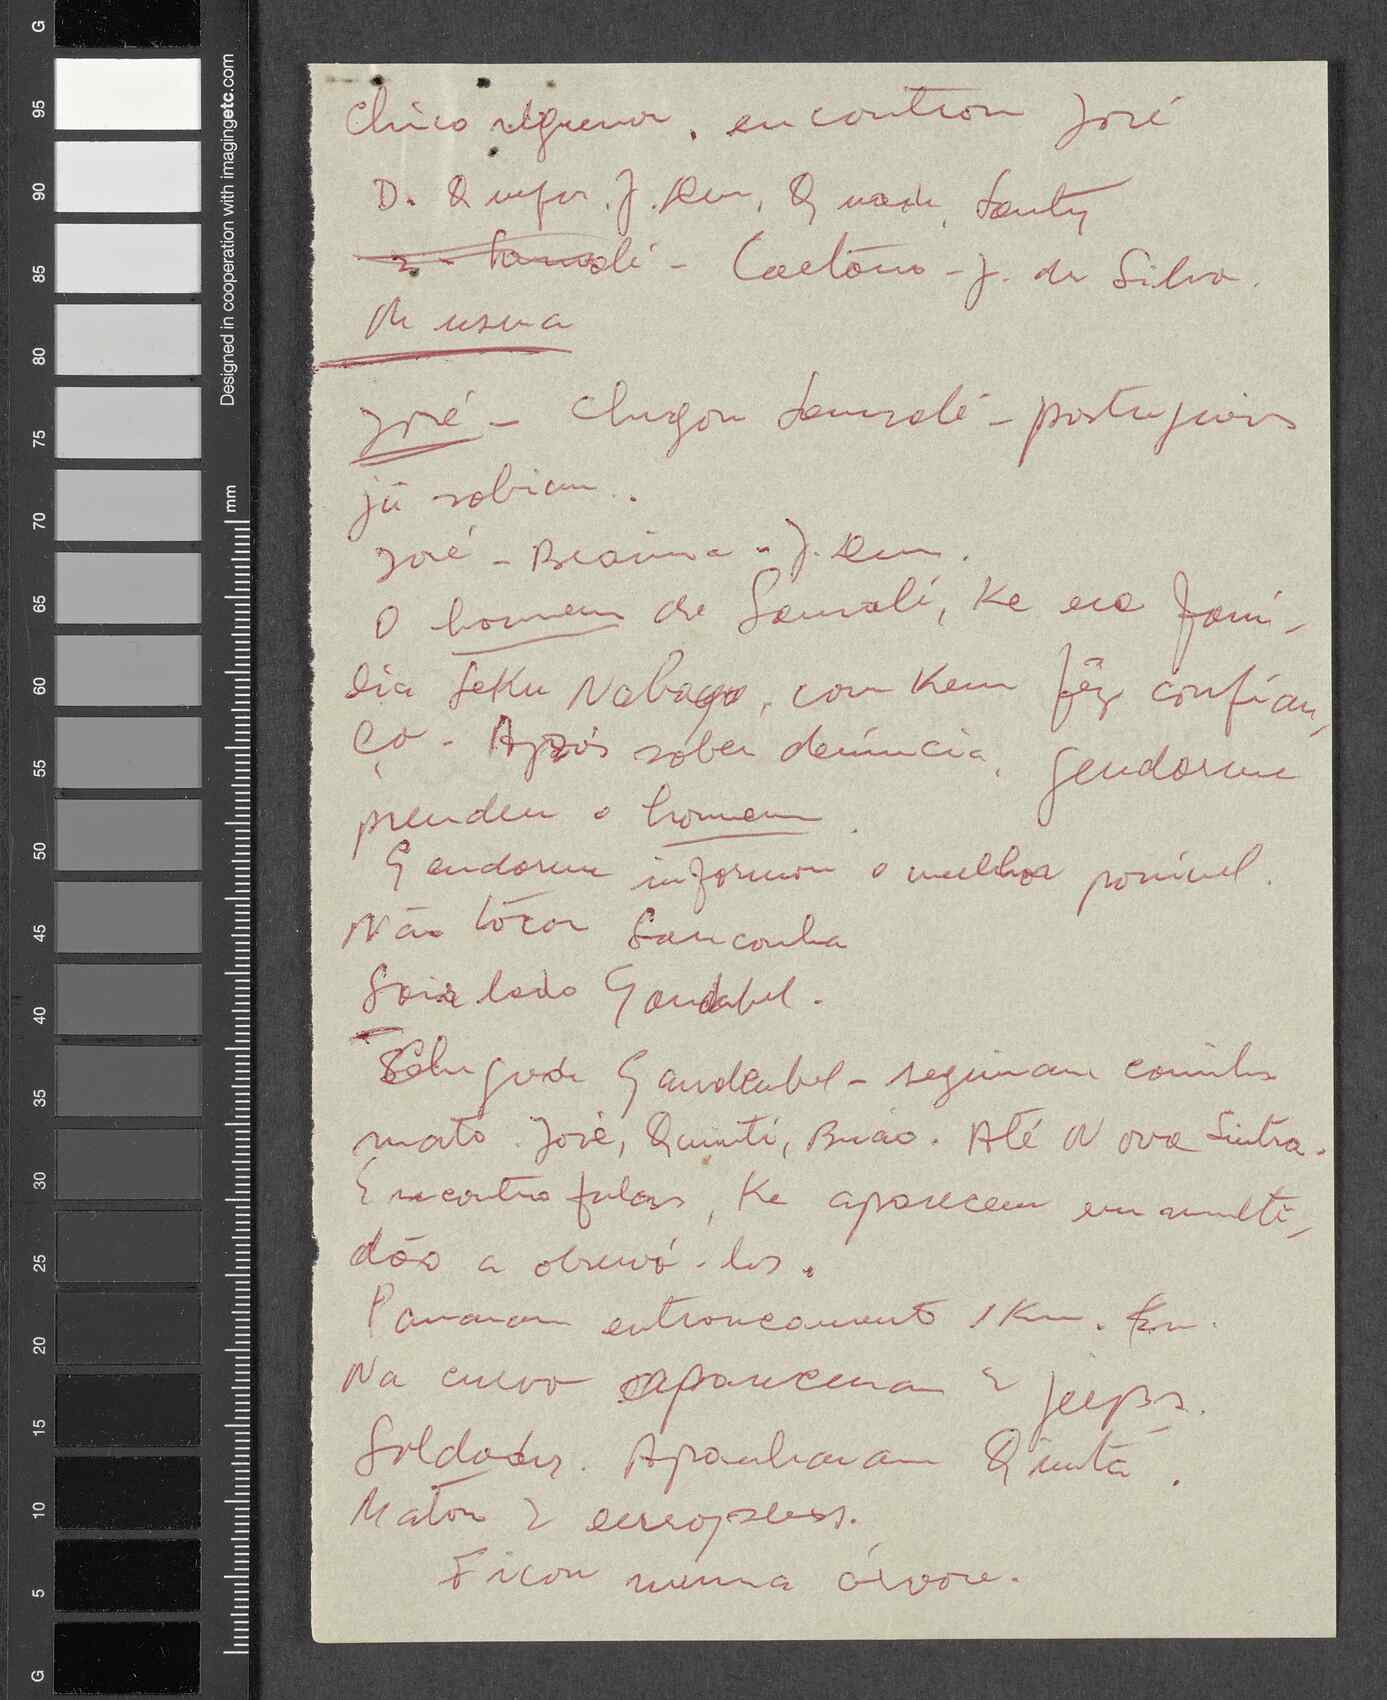 G 95 90 85 80 75 70 65 60 55 50 45 40 35 30 25 20 15 10 5 G
Designed in cooperation with imagingetc.com
mm
Chico, encontrou José
D.
Caetano - J. da Silva.
José - Chegou Sansalé - portugueses
já sabiam.
José - Biaima - J.
O homem de Sansalé, Ke era famí-
lia Seku Nabago, com Kem fêz confian-
ça - Após saber denúncia, Gendarme
prendeu o homem.
Gendarme informou o melhor possível.
Não tocar Sanconha
Saia lado Gandabel.
Chegada Gandembel - seguiram caminho
mato. José, Quinti, Buao. Até Nova Sintra.
Encontro fulas, Ke aparecem em multi-
dão a observá-los.
Passaram entroncamento 1 Km.
Na curva apareceram 2 jeeps.
Soldados. Apanharam Quintá.
Matou 2 europeus.
Ficou numa árvore.